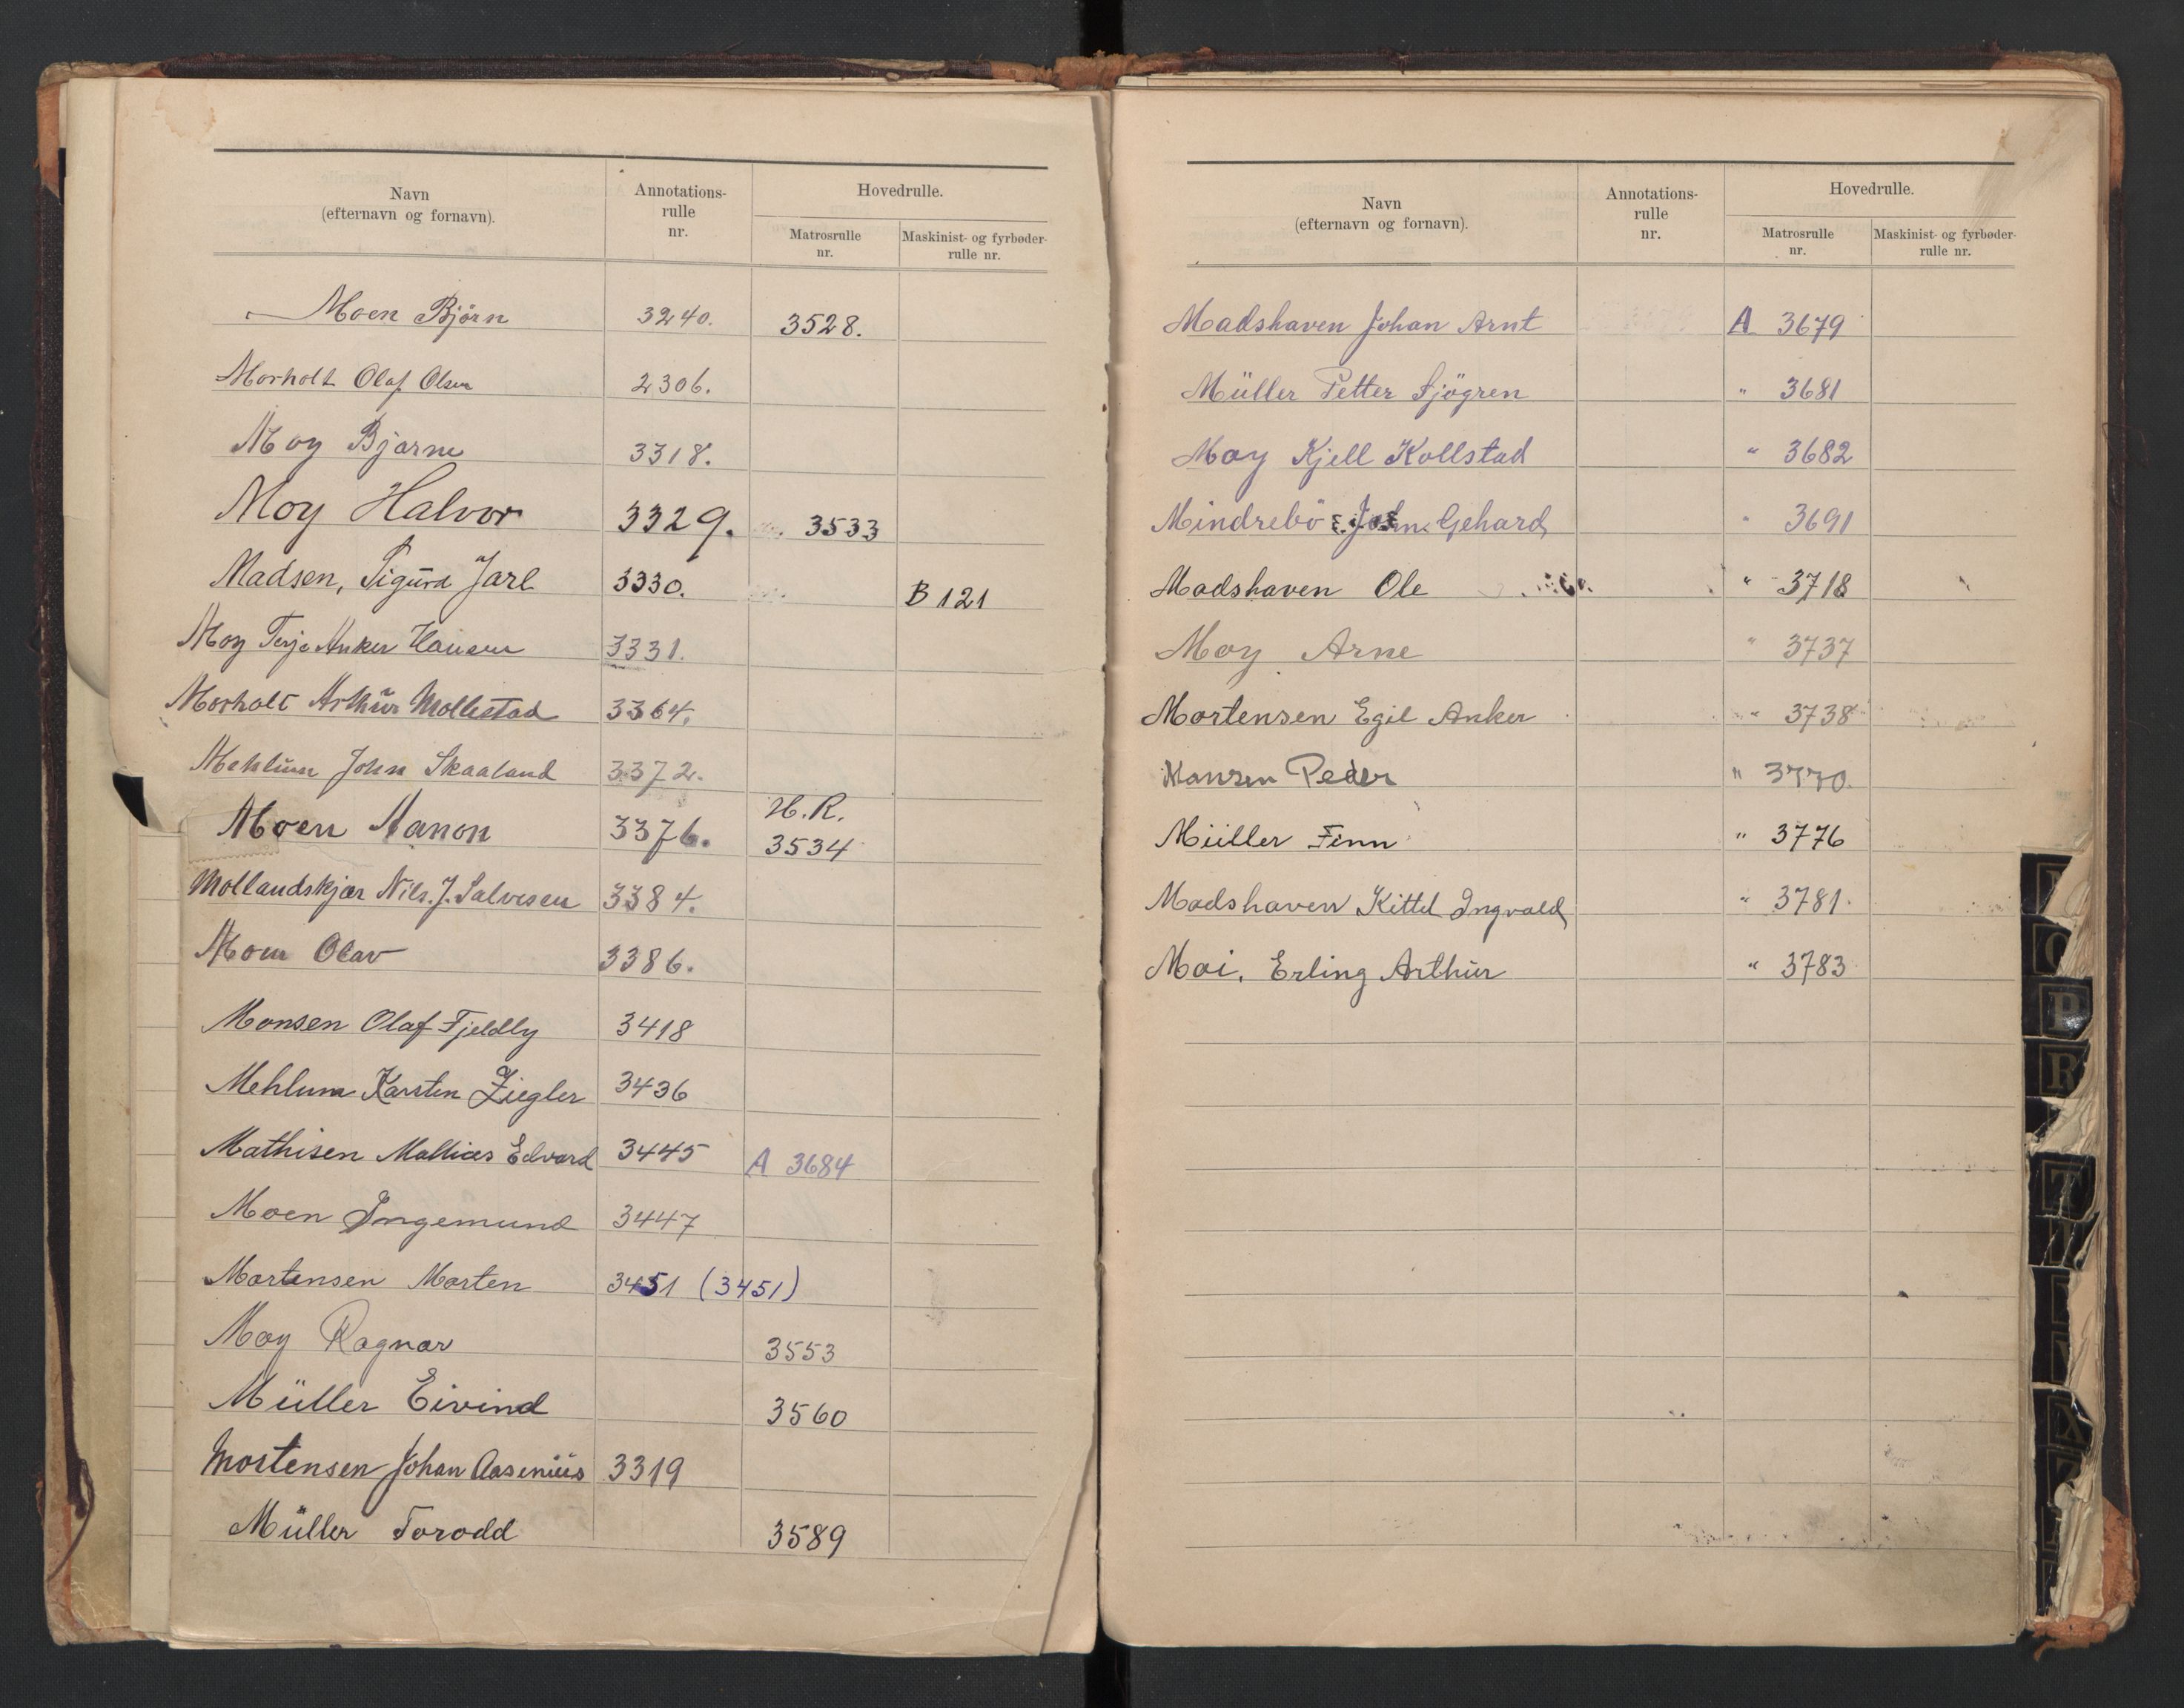 Navn
(efternavn og fornavn).
Annotations-
rulle
nr.
Hovedrulle.
Matrosrulle
nr.
Maskinist- og fyrbøder-
rulle nr.
Moen Bjørn 3240. 3528.
Morholt Olaf Olsen 2306.
Moy Bjarne 3318.
Moy Halvor 3329. 3533
Madsen, Sigurd Jarl 3330. B 121
Moy Terje Anker Hansen 3331.
Morholt Arthur Mollestad 3364.
Mehlum John Skaaland 3372.
Moen Aanon 3376. H.R. 3534
Mollandskjær Nils. J. Salvesen 3384.
Moen Olav 3386.
Monsen Olaf Fjeldly 3418
Mehlum Karsten Ziegler 3436
Mathisen Mathias Edvard 3445 A 3684
Moen Ingemund 3447
Mortensen Morten 3451 (3451)
Moy Ragnar 3553
Müller Eivind 3560
Mortensen Johan Aasenius 3319
Müller Torodd 3589
Navn
(efternavn og fornavn).
Annotations-
rulle
nr.
Hovedrulle.
Matrosrulle
nr.
Maskinist- og fyrbøder-
rulle nr.
Madshaven Johan Arnt A 3679
Müller Petter Sjögren " 3681
Moy Kjell Kollstad " 3682
Mindrebö John Gehard " 3691
Madshaven Ole " 3718
Moy Arne " 3737
Mortensen Egil Anker " 3738
Hansen Peder " 3770.
Müller Finn " 3776
Madshaven Kittel Ingvald " 3781.
Moi, Erling Arthur " 3783
P
R
T